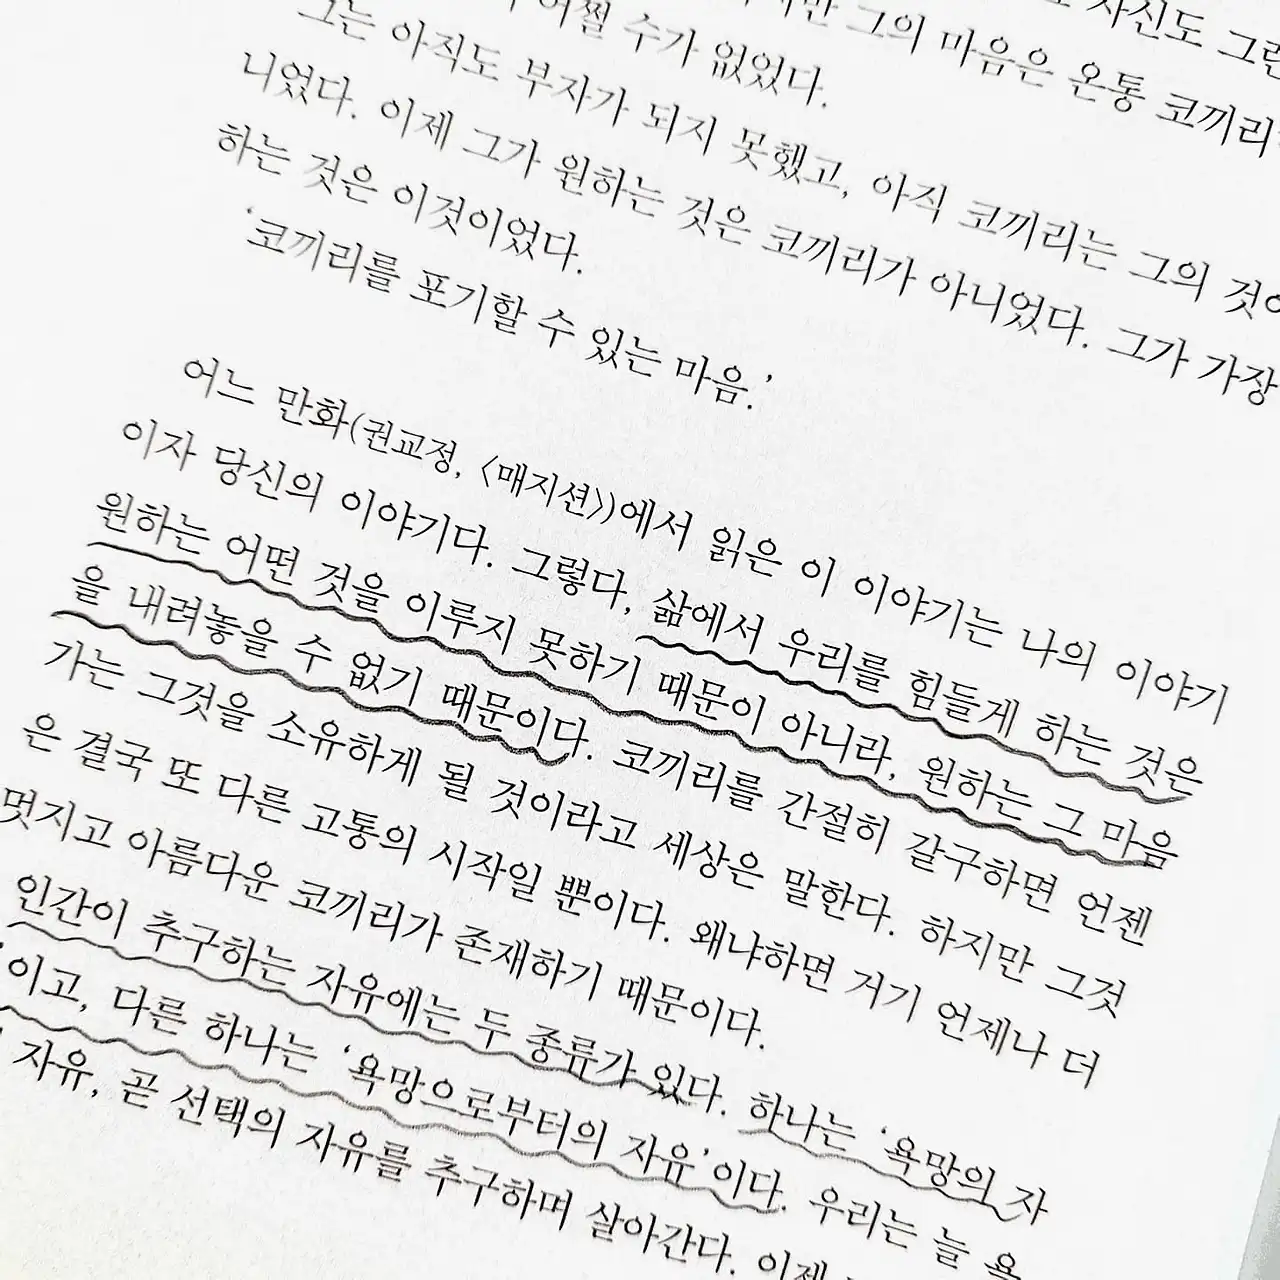 자신도 그런
어쩔 수가 없었다. 그의 마음은 온통 코끼리
그는 아직도 부자가 되지 못했고, 아직 코끼리는 그의 것이
니었다. 이제 그가 원하는 것은 코끼리가 아니었다. 그가 가장
하는 것은 이것이었다.
‘코끼리를 포기할 수 있는 마음.’
어느 만화(권교정, 〈매지션〉)에서 읽은 이 이야기는 나의 이야기
이자 당신의 이야기다. 그렇다, 삶에서 우리를 힘들게 하는 것은
원하는 어떤 것을 이루지 못하기 때문이 아니라, 원하는 그 마음
을 내려놓을 수 없기 때문이다. 코끼리를 간절히 갈구하면 언젠
가는 그것을 소유하게 될 것이라고 세상은 말한다. 하지만 그것
은 결국 또 다른 고통의 시작일 뿐이다. 왜냐하면 거기 언제나 더
멋지고 아름다운 코끼리가 존재하기 때문이다.
인간이 추구하는 자유에는 두 종류가 있다. 하나는 ‘욕망의 자
’이고, 다른 하나는 ‘욕망으로부터의 자유’이다. 우리는 늘 욕
자유, 곧 선택의 자유를 추구하며 살아간다. 이젠